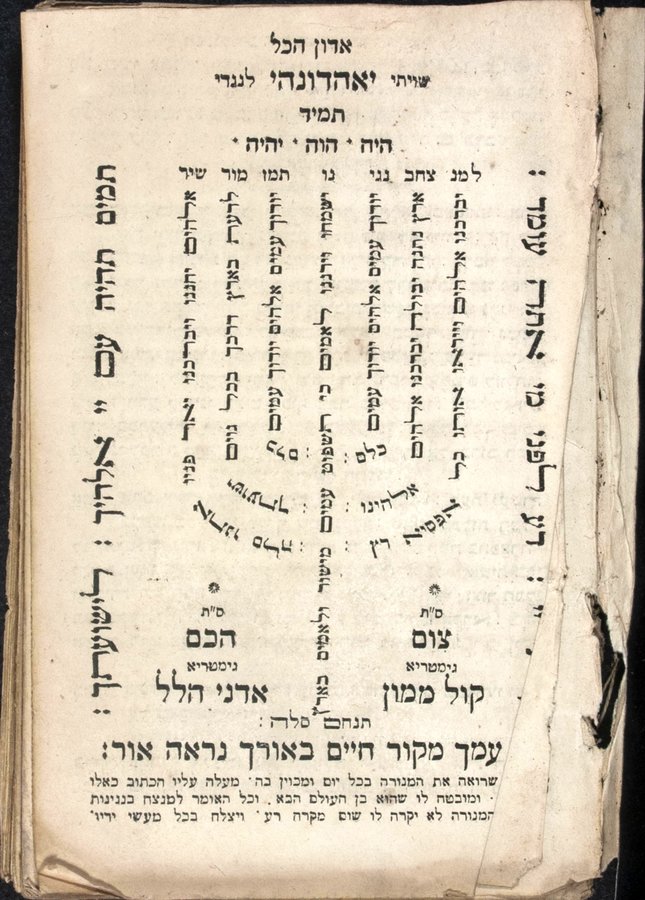 אדון הכל
שויתי יאהדונהי לנגדי
תמיד
היה · הוה · יהיה ·
דע לפני מי אתה עומד :
למנ צחב נגי נו תמו מור שיר
אלהים יחננו ויברכנו יאר פניו אתנו סלה :
לדעת בארץ דרכך בכל גוים ישועתך :
יודוך עמים אלהים יודוך עמים כלם :
ישמחו וירננו לאמים כי תשפוט עמים מישור ולאמים בארץ
יודוך עמים אלהים יודוך עמים כלם :
ארץ נתנה יבולה יברכנו אלהים אלהינו :
יברכנו אלהים וייראו אותו כל אפסי ארץ
תמים תהיה עם יי אלהיך : לישועתך :
ס"ת ס"ת
צום הכם
גימטריא גימטריא
קול ממון אדני הלל
תנחם סלה :
עמך מקור חיים באורך נראה אור :
שרואה את המנורה בכל יום ומכוין בה׳ מעלה עליו הכתוב כאלו
ומובטח לו שהוא בן העולם הבא . וכל האומר למנצח בנגינות
המנורה לא יקרה לו שום מקרה רע׳ ויצלח בכל מעשי ידיו׳